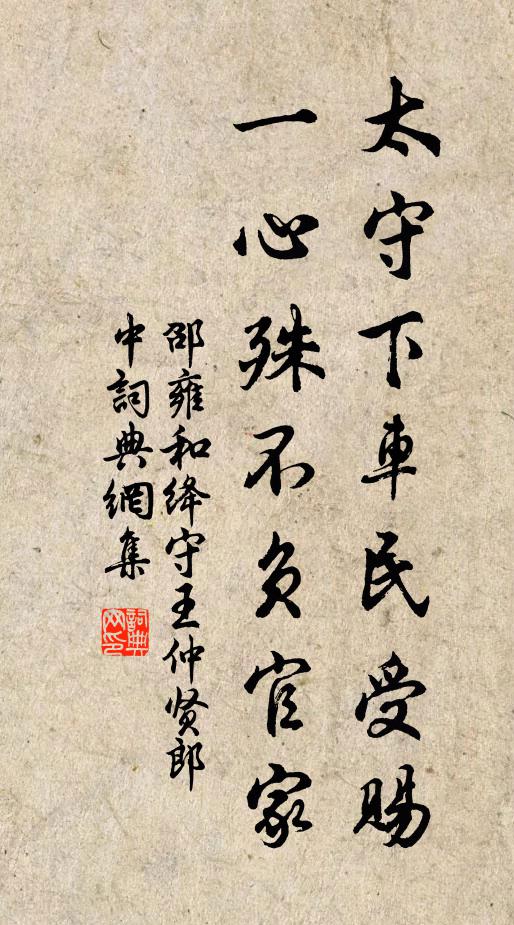 太守下車民受賜
一心殊不负官家
邵雍和绛守王仲贤郎
中詞典網集
詞典
网印